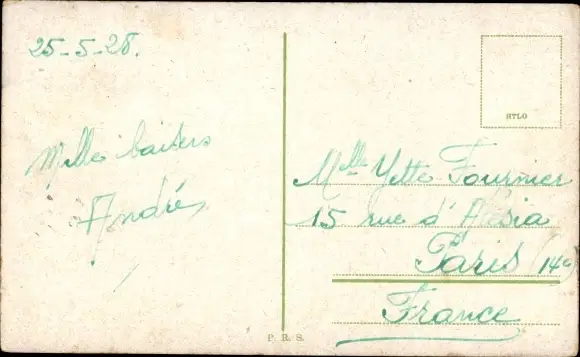 25-5-28.
Mille baisers
André
RTLO
Mlle Yette Fournier
15 rue d'Alésia
Paris (14e)
France
P. R. S.